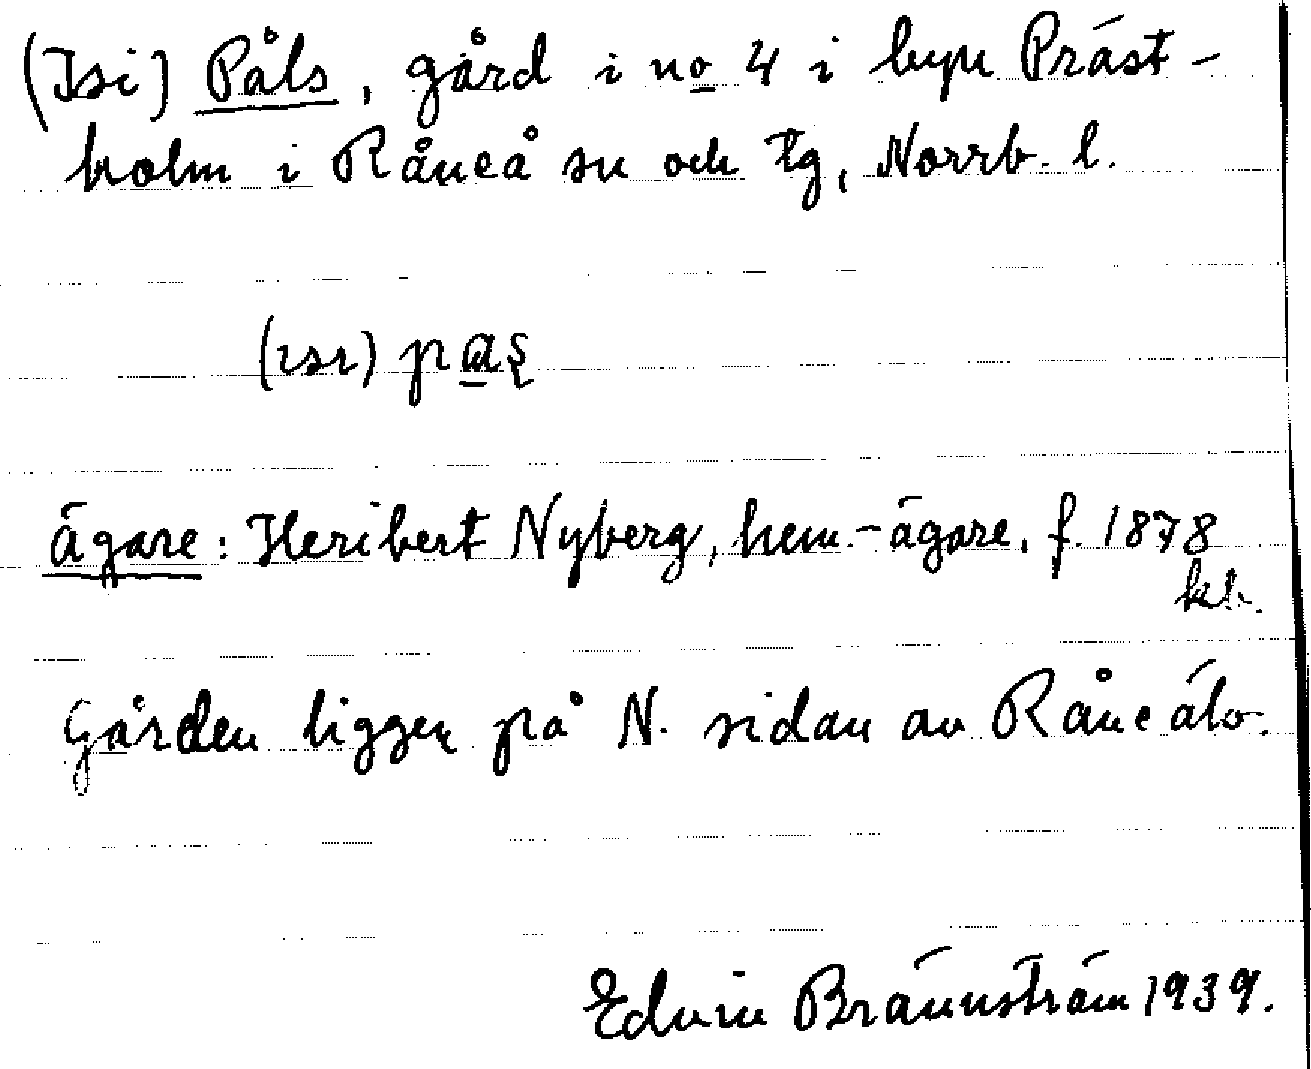 (Isi) Påls, gård i no 4 i byn Präst-
holm i Råneå sn och tg, Norrb. l.
(ɪsɪ) pɑʂ
ägare: Heribert Nyberg, hem.-ägare, f. 1878
Gården ligger på N. sidan av Råneälv.
Edvin Brännström 1939.